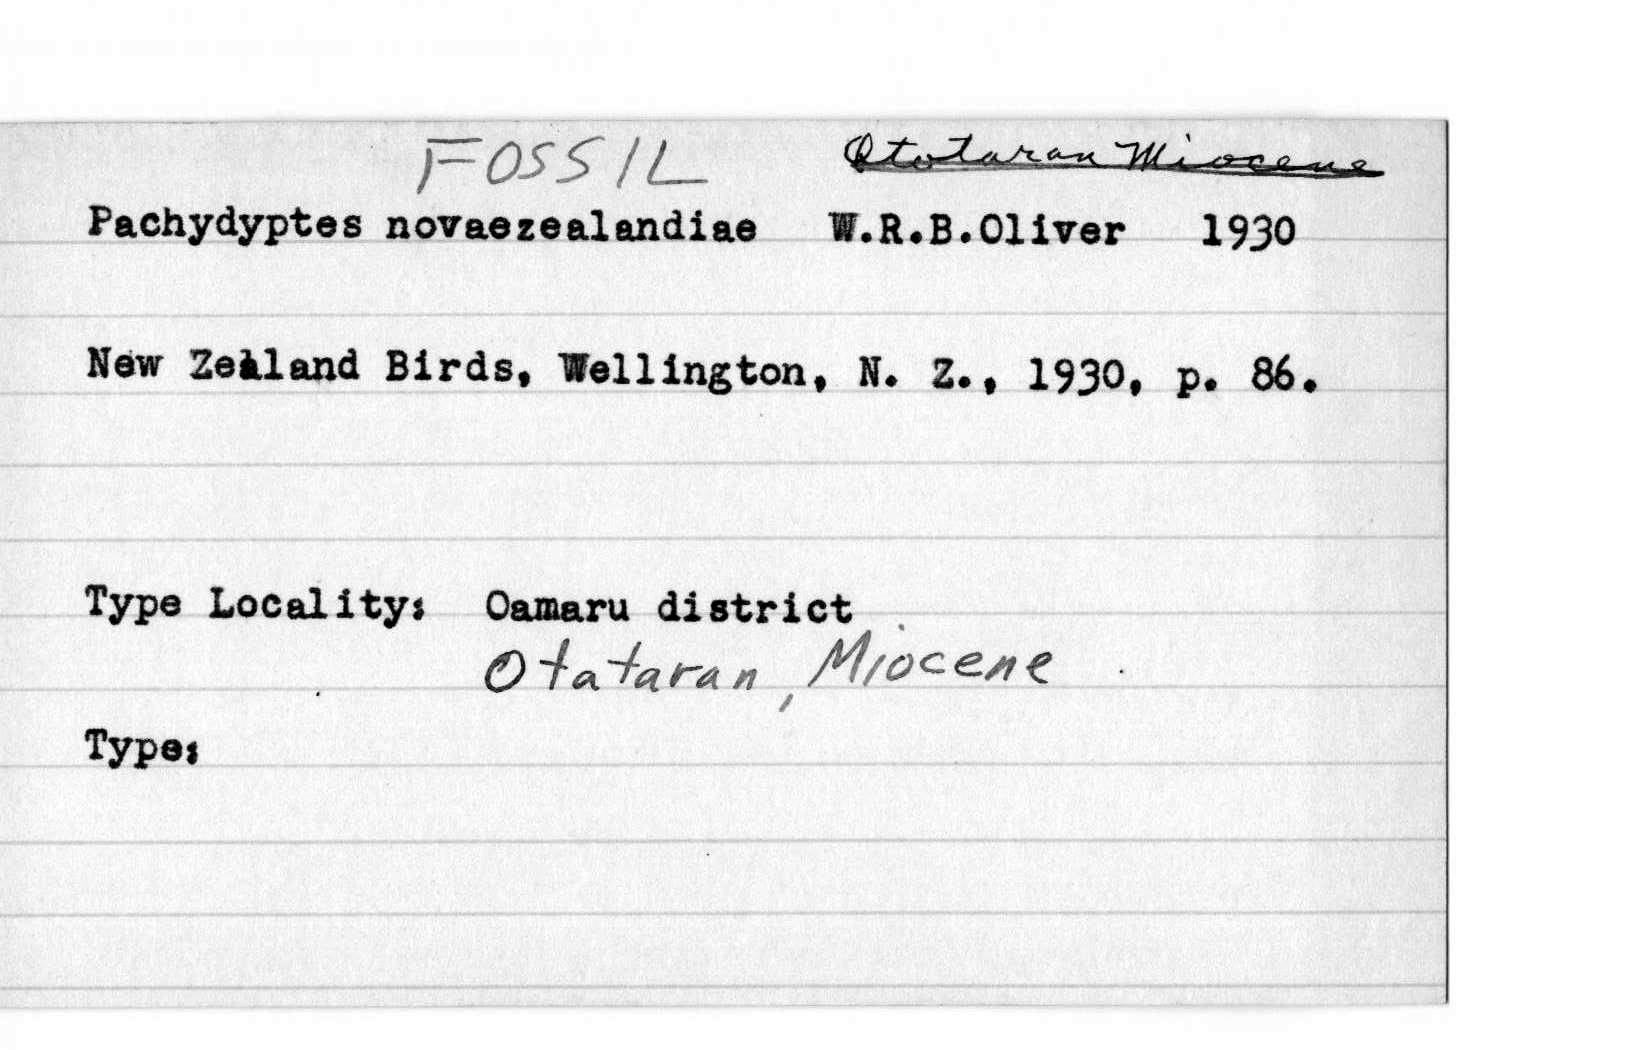 FOSSIL Ototaran Miocene
Pachydyptes novaezealandiae W.R.B.Oliver 1930
New Zealand Birds, Wellington, N. Z., 1930, p. 86.
Type Locality: Oamaru district
Otataran, Miocene
Type: